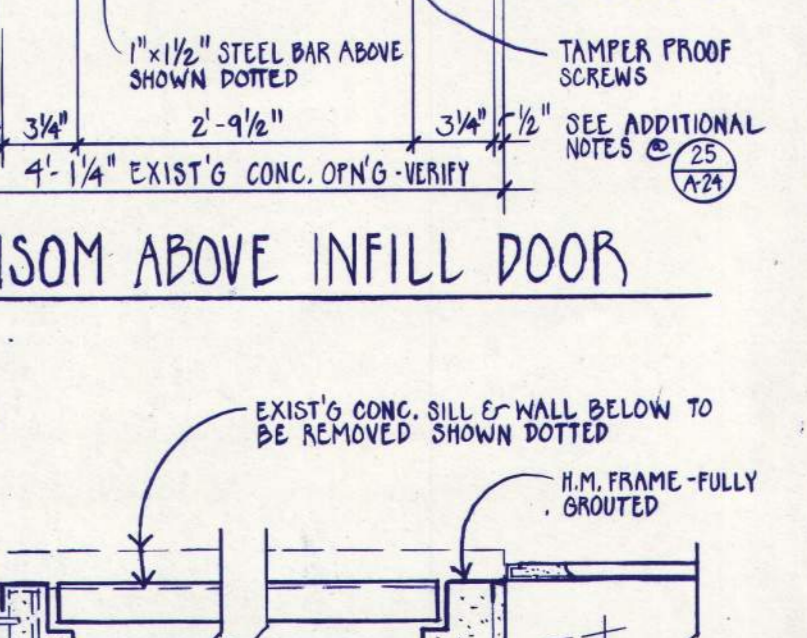 1"x1½" STEEL BAR ABOVE
SHOWN DOTTED
TAMPER PROOF
SCREWS
3¼" 2'-9½" 3¼" ½"
SEE ADDITIONAL
NOTES @ 25
A-24
4'-1¼" EXIST'G CONC. OPN'G - VERIFY
SOM ABOVE INFILL DOOR
EXIST'G CONC. SILL & WALL BELOW TO
BE REMOVED SHOWN DOTTED
H.M. FRAME - FULLY
GROUTED